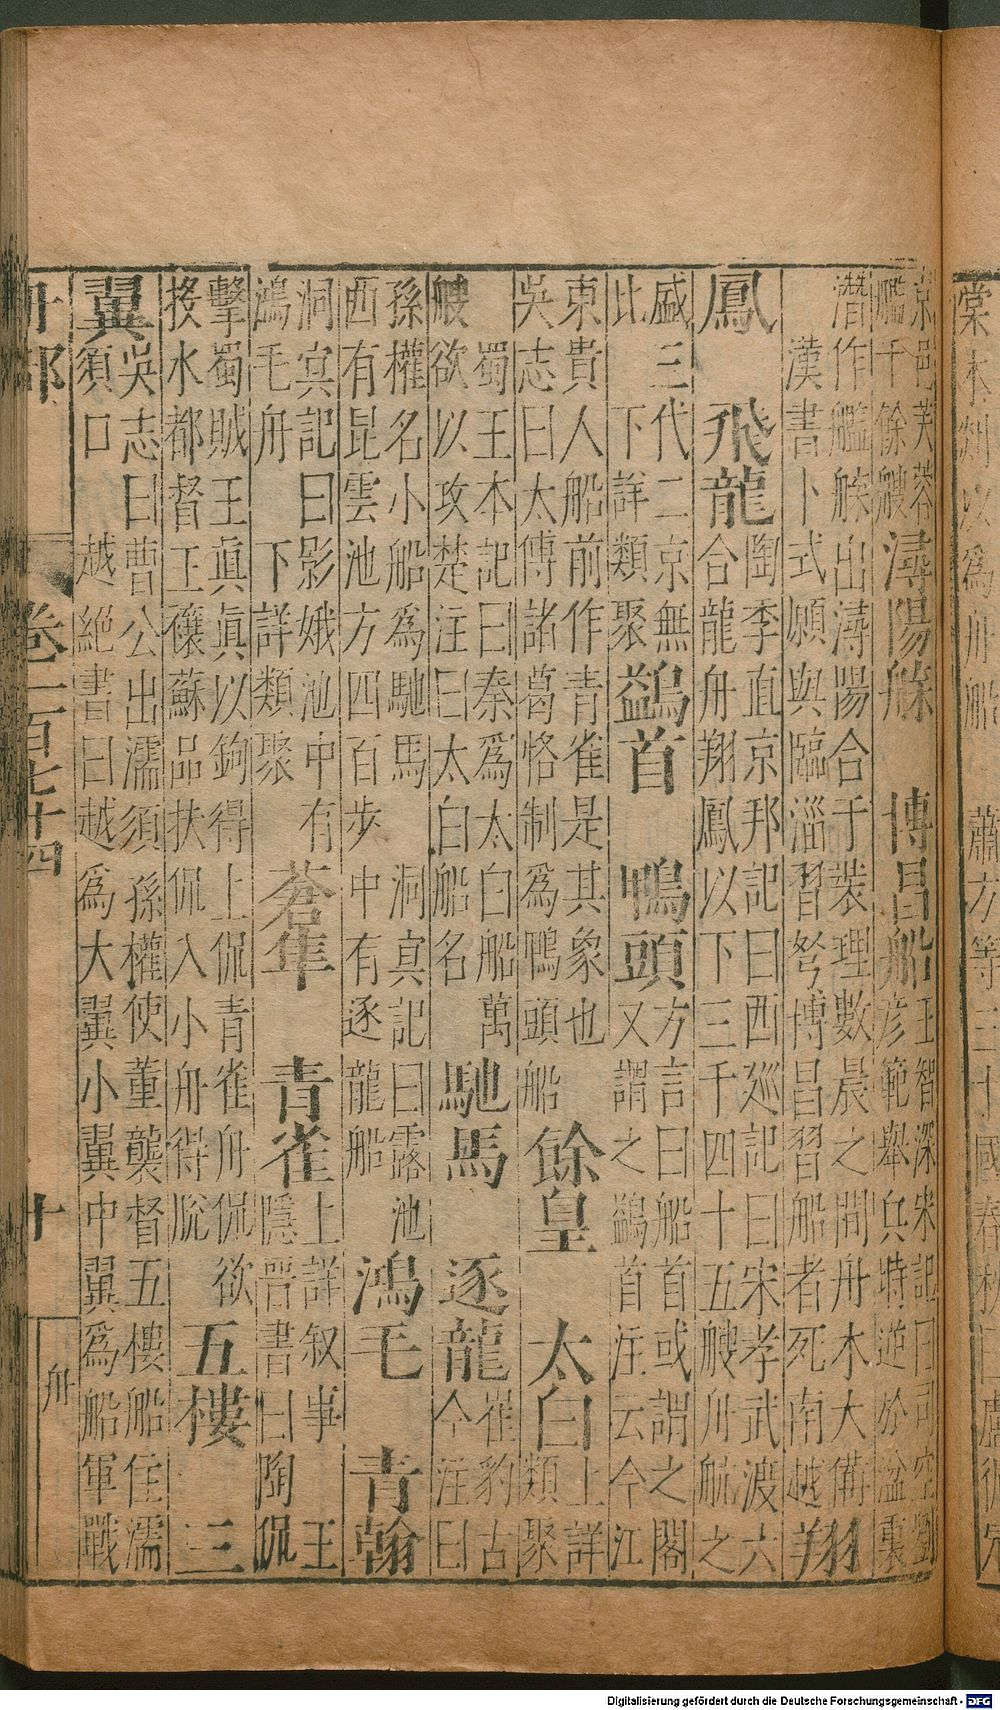 棠木刻以為舟船　蕭方等三十國春秋曰盧循
京邑芙蓉
艦千餘艘
潯陽䑨　博昌船
王智深宋記曰司空劉
彦範舉兵時遊於盆裏
潛作艦䑨出潯陽合千裝理數晨之間舟木大備
漢書卜式願與臨淄習弩博昌習船者死南越
翔
鳳　飛龍
陶季直京邦記曰西巡記曰宋孝武渡六
合龍舟翔鳳以下三千四十五艘舟航之
盛三代二京無
比　下詳類聚
鷁首　鴨頭
方言曰船首或謂之閤
又謂之鷁首注云今江
東貴人船前作青雀是其象也
吳志曰太傅諸葛恪制為鴨頭船
餘皇　太白
上詳
類聚
蜀王本記曰秦為太白船萬
艘欲以攻楚注曰太白船名
馳馬　逐龍
崔豹古
今注曰
孫權名小船為馳馬　洞冥記曰露池
西有昆雲池方四百步中有逐龍船
鴻毛　青翰
洞冥記曰影娥池中有
鴻毛舟　下詳類聚
蒼隼　青雀
上詳叙事　王
隱晉書曰陶侃
擊蜀賊王真真以鉤得上侃青雀舟侃欲
投水都督王穰蘇品扶侃入小舟得脫
五樓　三
翼
吳志曰曹公出濡須孫權使董襲督五樓船住濡
須口　越絕書曰越為大翼小翼中翼為船軍戰
舟部　卷一百七十四　十　舟
Digitalisierung gefördert durch die Deutsche Forschungsgemeinschaft - DFG